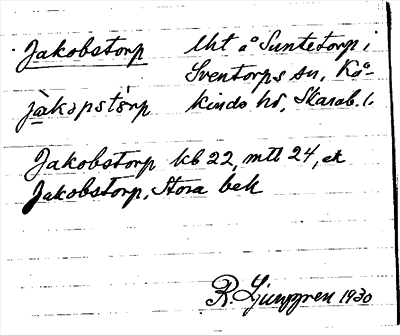 Jakobstorp lht å Suntetorp i
Sventorps sn, Kå-
jàkɔpstɜ̀rp kinds hd, Skarab. l.
Jakobstorp kb 22, mtl 24, ek
Jakobstorp, Stora bek
R. Ljunggren 1930